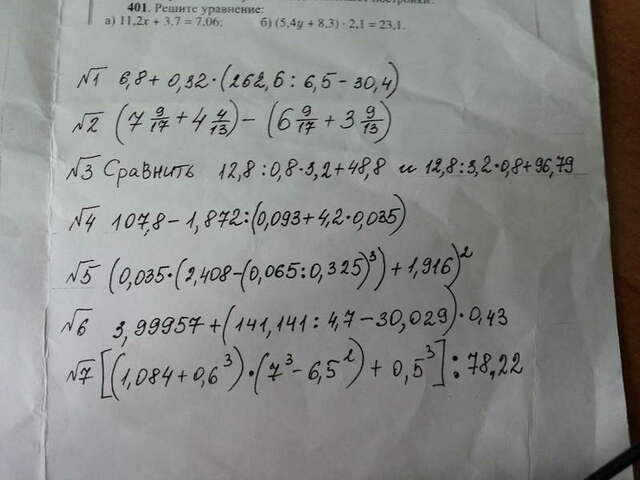 401. Решите уравнение:
а) 11,2x + 3,7 = 7,06; б) (5,4y + 8,3) · 2,1 = 23,1.
№1 6,8 + 0,32 · (262,6 : 6,5 − 30,4)
№2 (7 9/17 + 4 4/13) − (6 9/17 + 3 9/13)
№3 Сравнить 12,8 : 0,8 · 3,2 + 48,8 и 12,8 : 3,2 · 0,8 + 96,79
№4 107,8 − 1,872 : (0,093 + 4,2 · 0,035)
№5 (0,035 · (2,408 − (0,065 : 0,325)³) + 1,916)²
№6 3,99957 + (141,141 : 4,7 − 30,029) · 0,43
№7 [(1,084 + 0,6³) · (7³ − 6,5²) + 0,5³] : 78,22